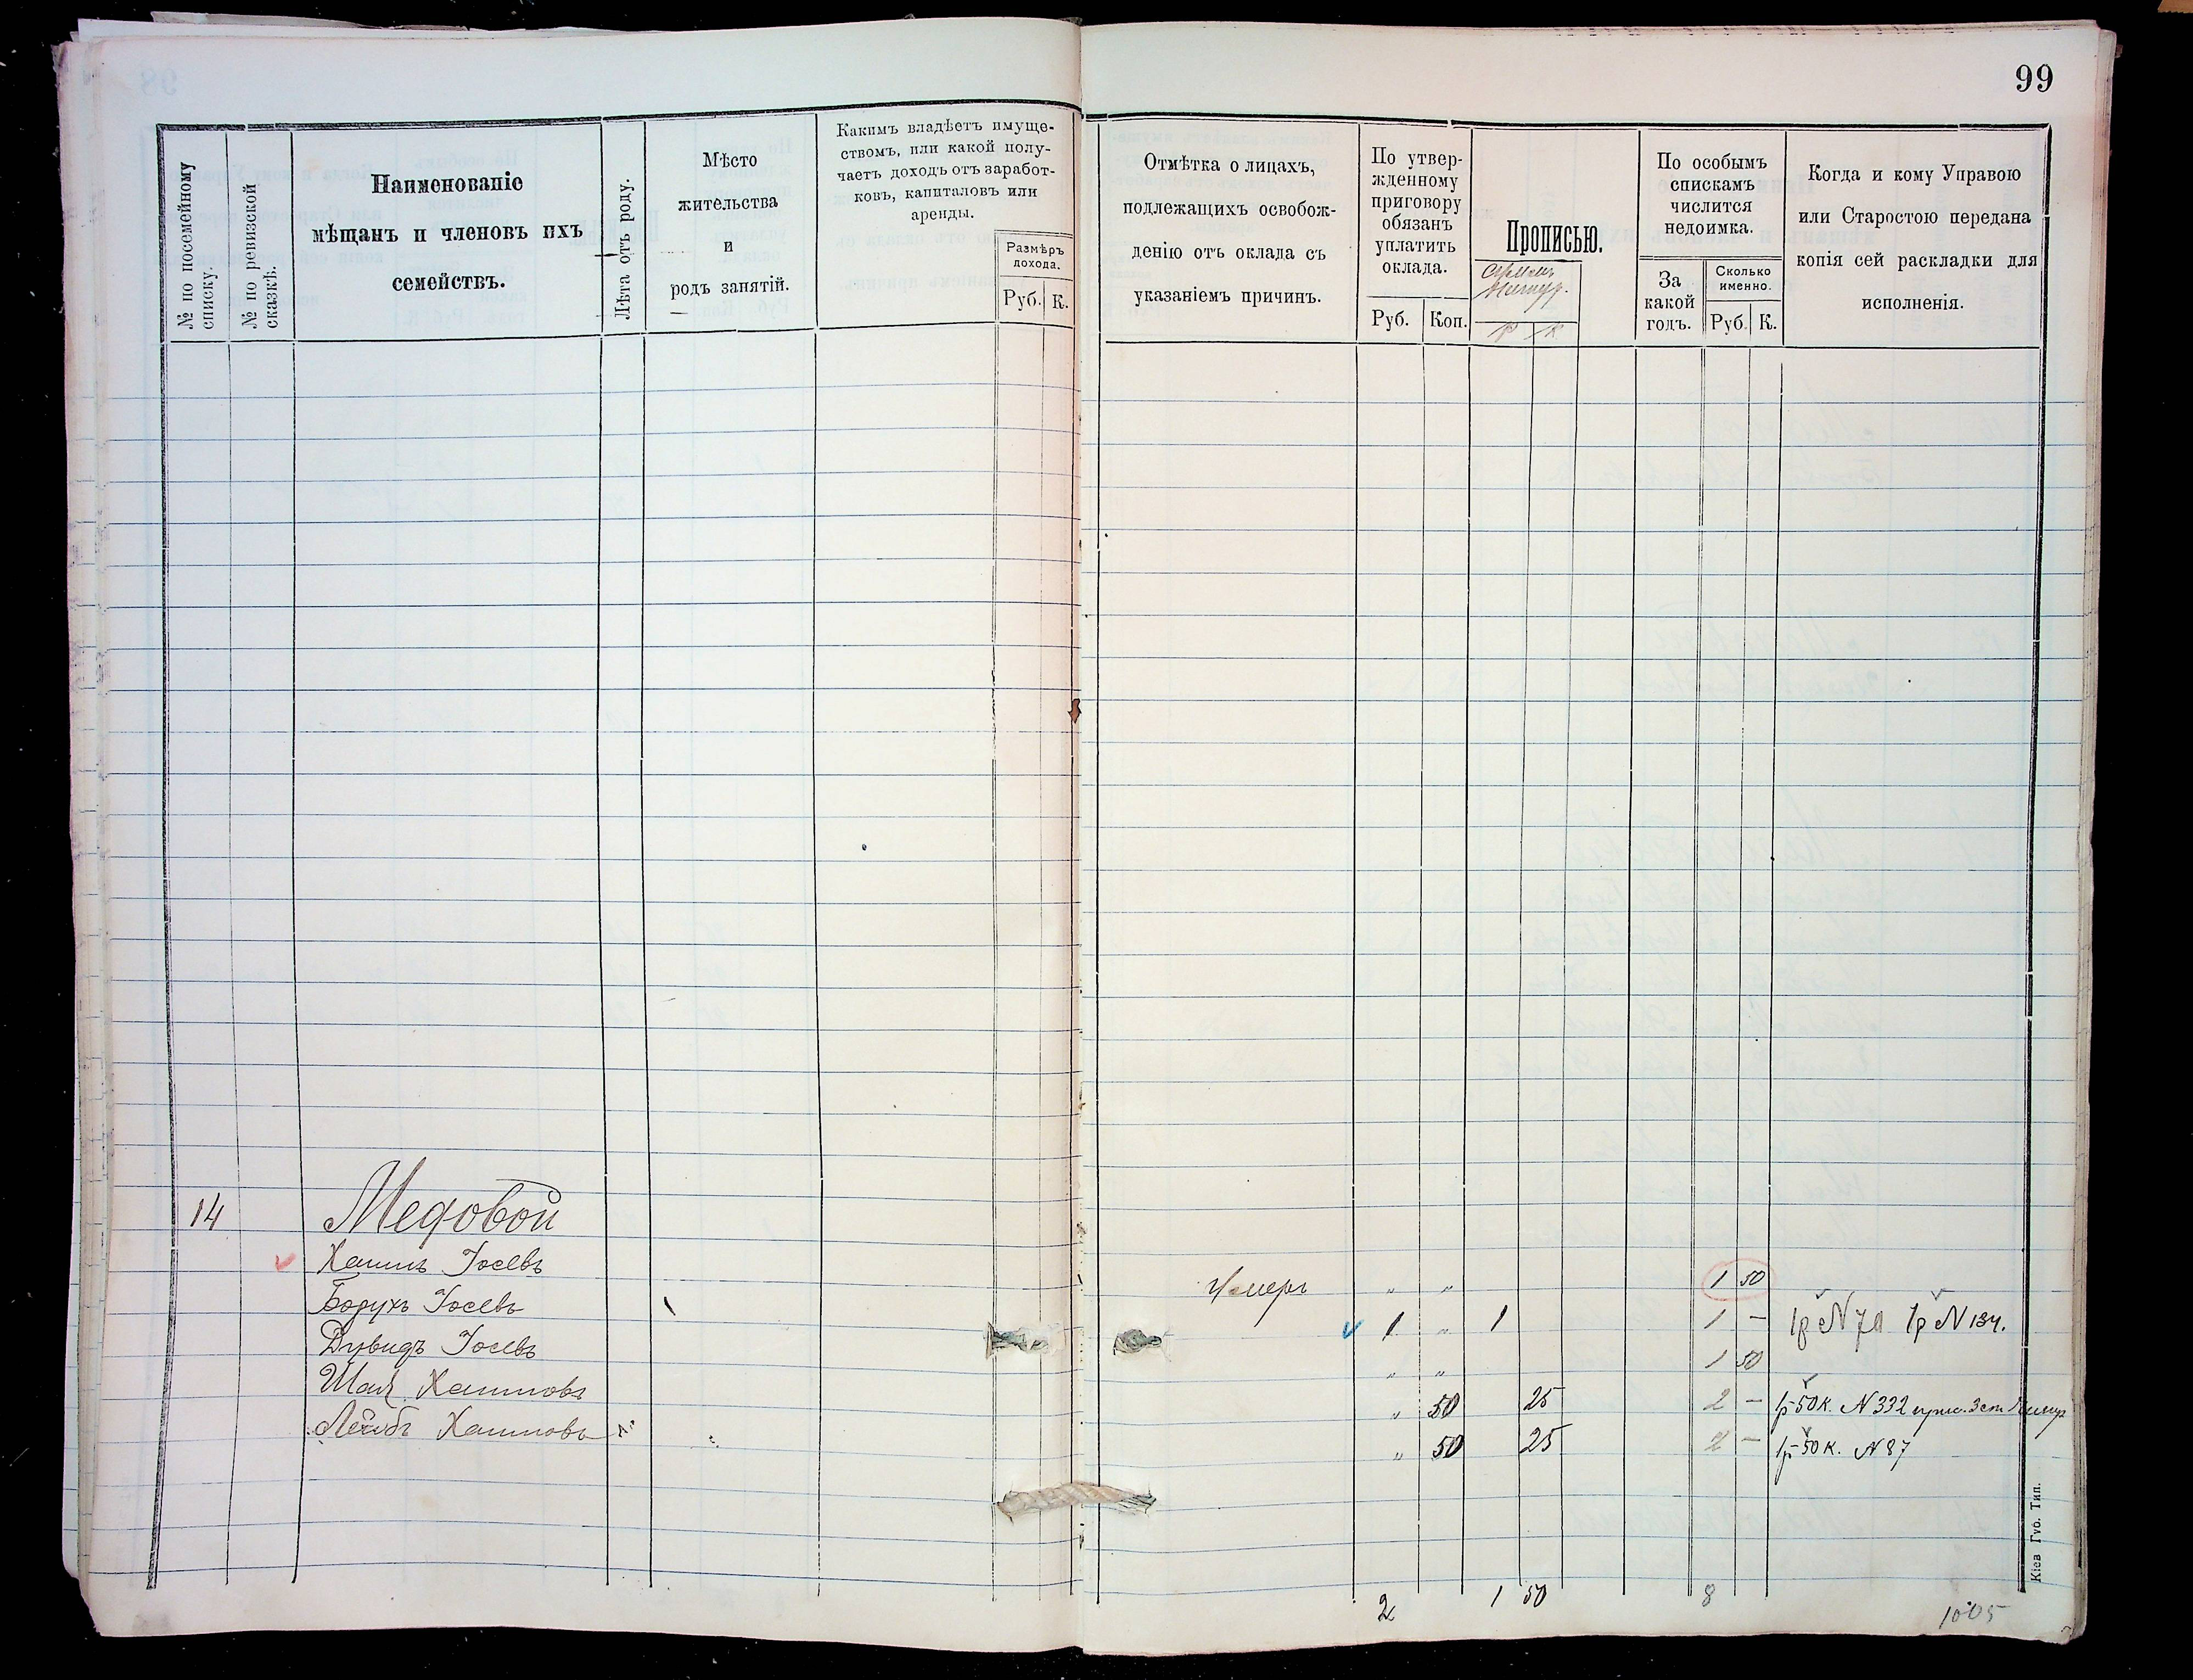 99
№ по посемейному списку.
№ по ревизской сказкѣ.
Наименованіе
мѣщанъ и членовъ ихъ
семействъ.
Лѣта отъ роду.
Мѣсто
жительства
и
родъ занятій.
Какимъ владѣетъ имуще-
ствомъ, или какой полу-
чаетъ доходъ отъ заработ-
ковъ, капиталовъ или
аренды.
Размѣръ
дохода.
Руб. К.
Отмѣтка о лицахъ,
подлежащихъ освобож-
денію отъ оклада съ
указаніемъ причинъ.
По утвер-
жденному
приговору
обязанъ
уплатить
оклада.
Руб. Коп.
Прописью.
р к
По особымъ
спискамъ
числится
недоимка.
За
какой
годъ.
Сколько
именно.
Руб. К.
Когда и кому Управою
или Старостою передана
копія сей раскладки для
исполненія.
14 Медовой
Хаимъ Іосевъ Умеръ " " 1 50
Борухъ Іосевъ 1 " 1 1 – 1р N 70 1р N 134.
Дувидъ Іосевъ " " 1 50
Шая Хаимовъ " 50 25 2 – 1р 50к. N 332
Лейбъ Хаимовъ " 50 25 2 – 1р 50к. N 87
2 1 50 8
1005
Кіев Губ. Тип.